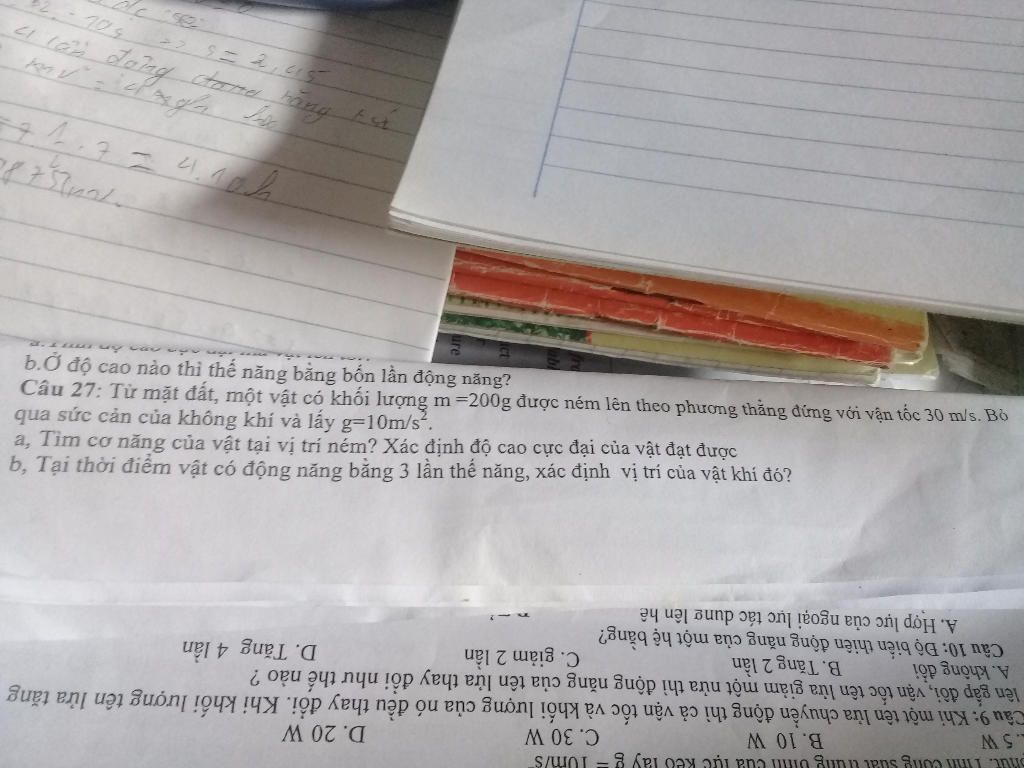 => s = 2,45
= 4.10h
b.Ở độ cao nào thì thế năng bằng bốn lần động năng?
Câu 27: Từ mặt đất, một vật có khối lượng m =200g được ném lên theo phương thẳng đứng với vận tốc 30 m/s. Bỏ
qua sức cản của không khí và lấy g=10m/s².
a, Tìm cơ năng của vật tại vị trí ném? Xác định độ cao cực đại của vật đạt được
b, Tại thời điểm vật có động năng bằng 3 lần thế năng, xác định vị trí của vật khi đó?
công suất trung bình của lực kéo lấy g = 10m/s
5 W B. 10 W C. 30 W D. 20 W
Câu 9: Khi một tên lửa chuyển động thì cả vận tốc và khối lượng của nó đều thay đổi. Khi khối lượng tên lửa tăng
lên gấp đôi, vận tốc tên lửa giảm một nửa thì động năng của tên lửa thay đổi như thế nào ?
A. không đổi B. Tăng 2 lần C. giảm 2 lần D. Tăng 4 lần
Câu 10: Độ biến thiên động năng của một hệ bằng?
A. Hợp lực của ngoại lực tác dụng lên hệ